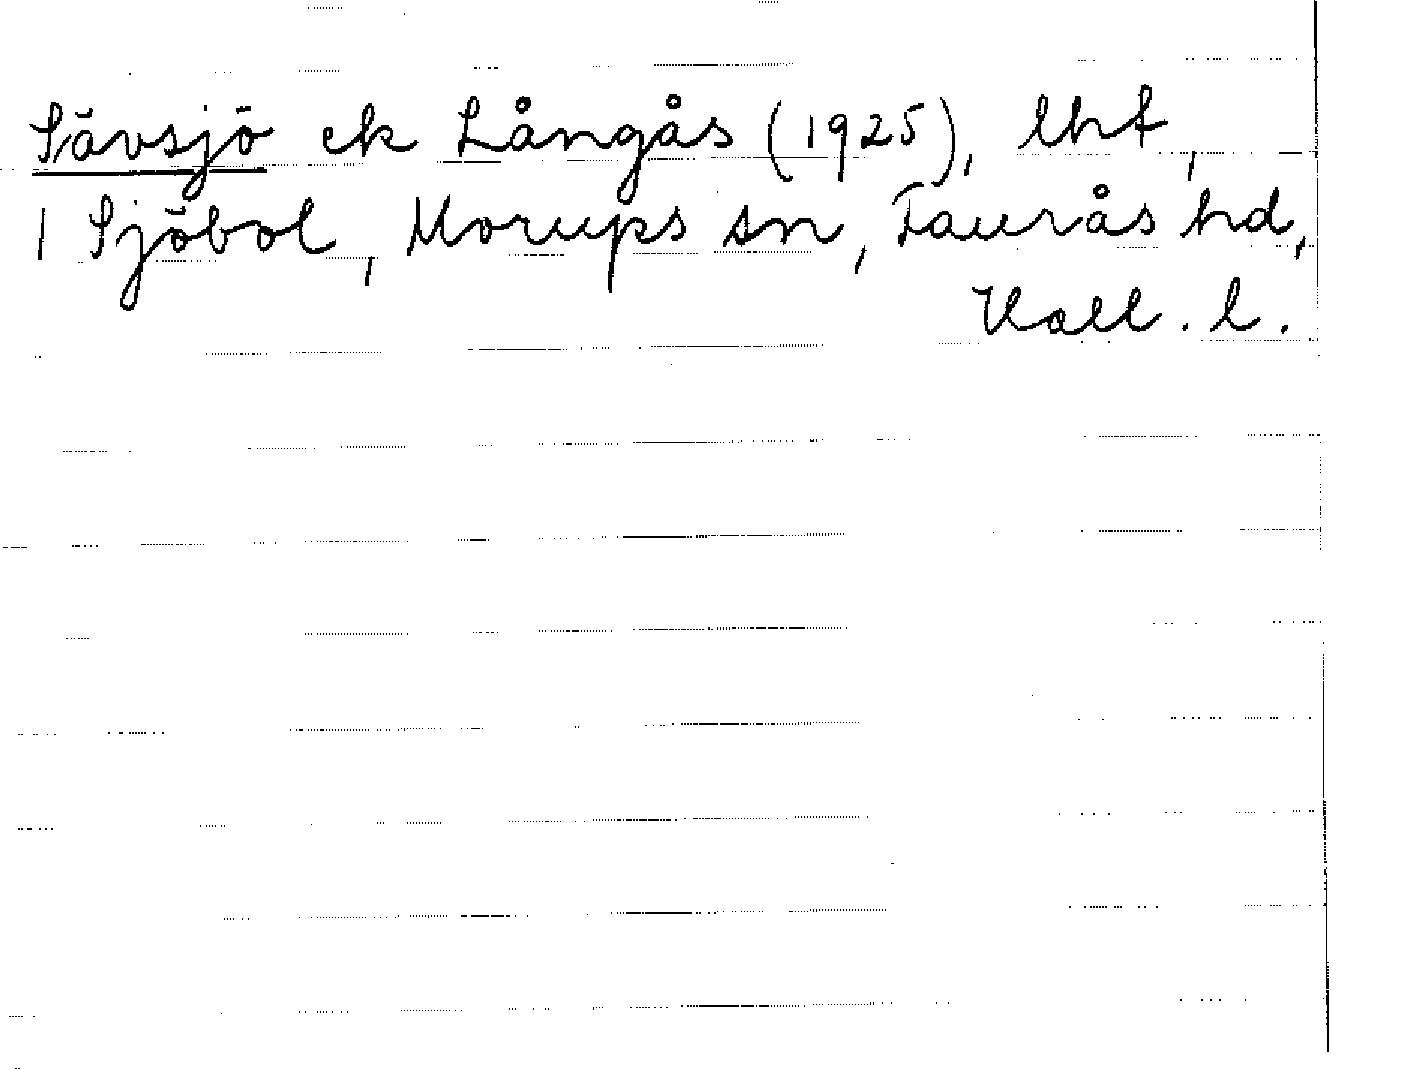 Sävsjö ek Långås (1925), lht,
1 Sjöbol, Morups sn, Faurås hd,
Hall. l.